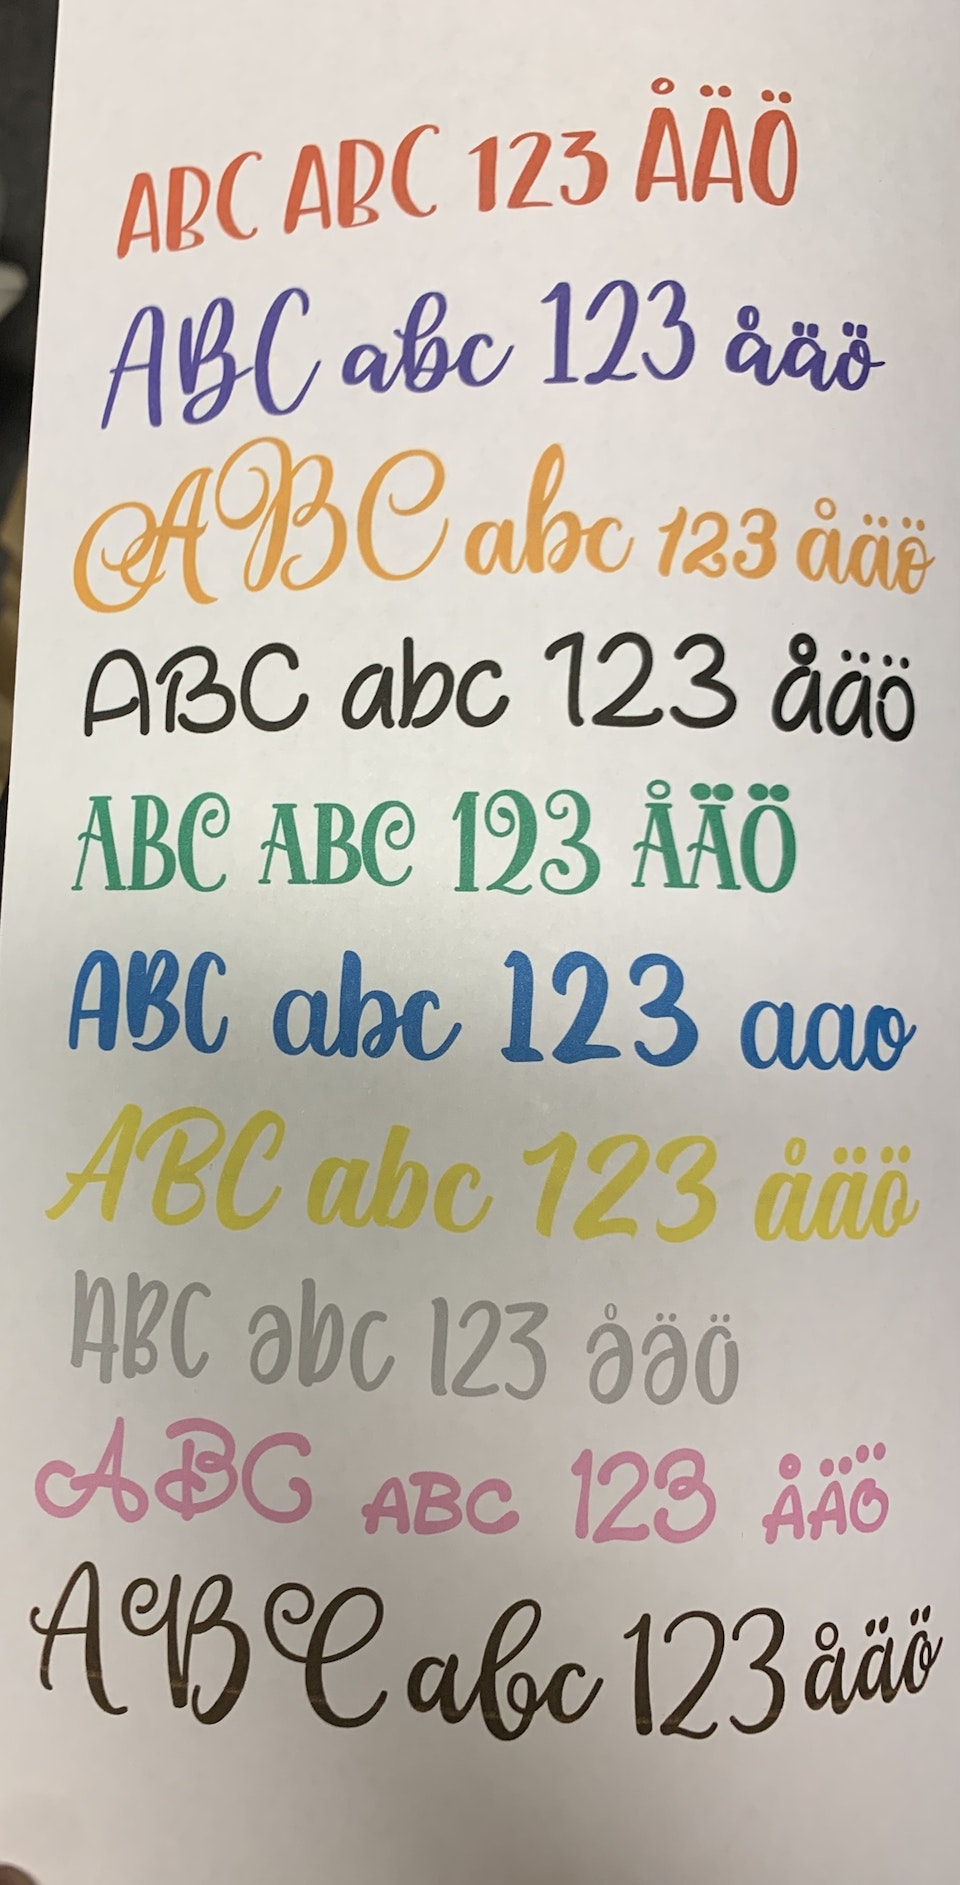 ABC ABC 123 ÅÄÖ
ABC abc 123 åäö
ABC abc 123 åäö
ABC abc 123 åäö
ABC ABC 123 ÅÄÖ
ABC abc 123 aao
ABC abc 123 åäö
ABC abc 123 åäö
ABC ABC 123 ÅÄÖ
ABC abc 123 åäö